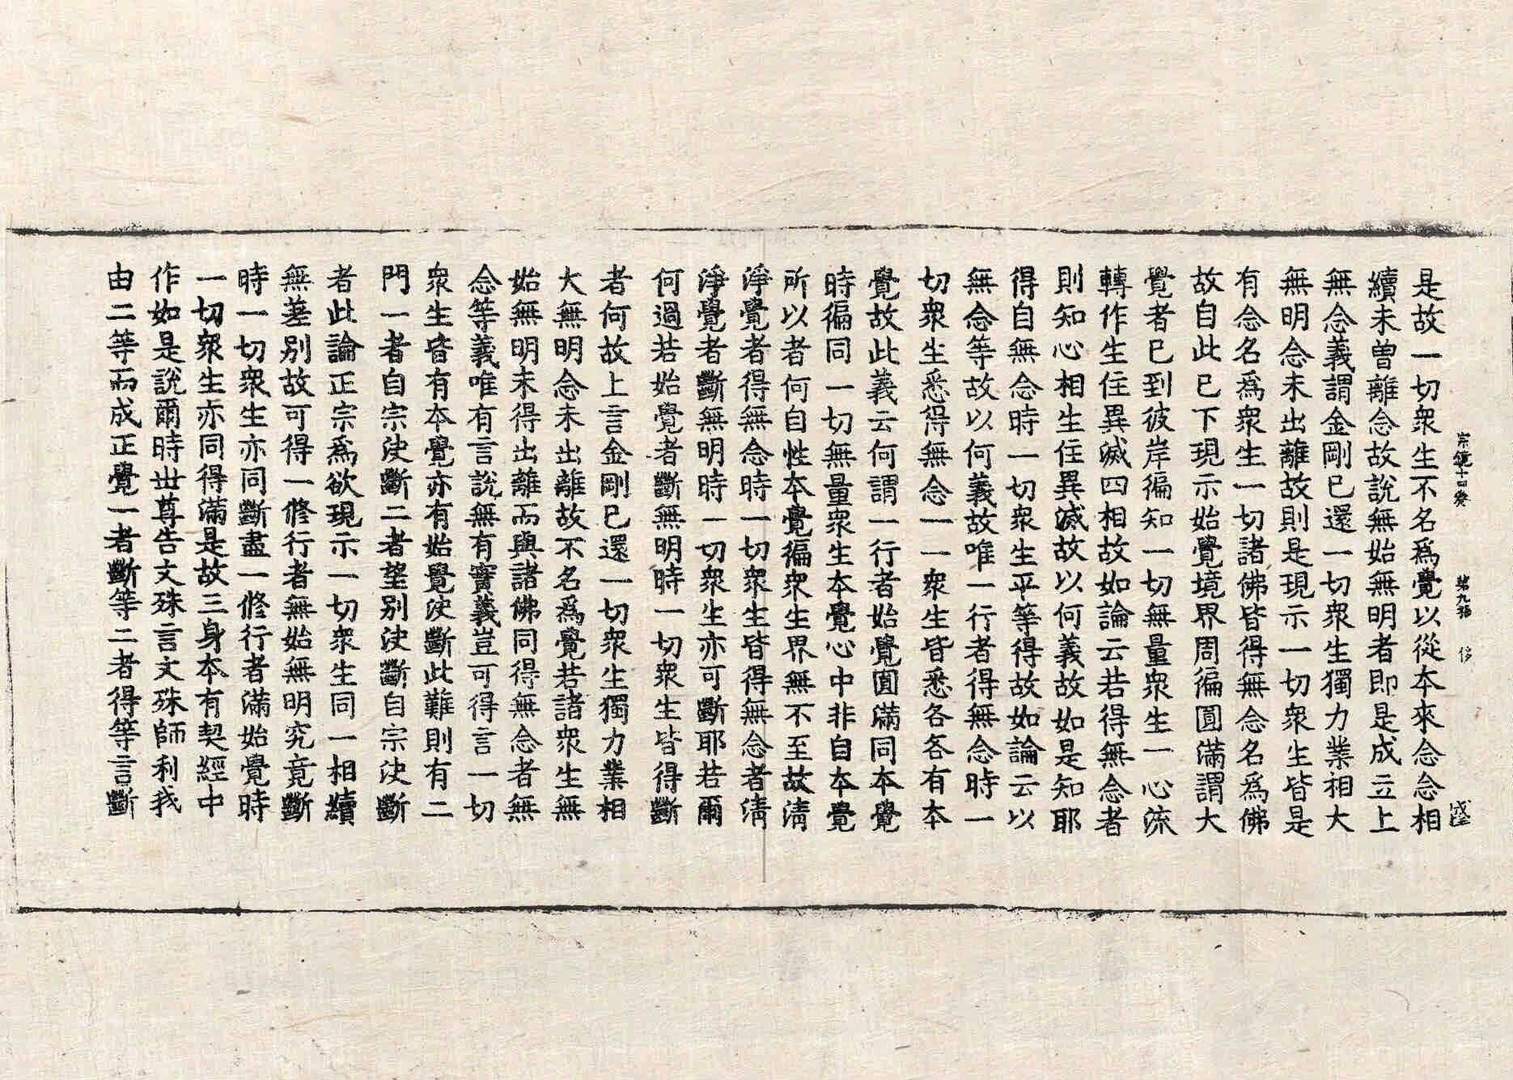 是故一切衆生不名爲覺以從本來念念相
宗鏡十四卷 第九張 侈
續未曾離念故說無始無明者即是成立上
無念義謂金剛已還一切衆生獨力業相大
無明念未出離故則是現示一切衆生皆是
有念名爲衆生一切諸佛皆得無念名爲佛
故自此已下現示始覺境界周徧圓滿謂大
覺者已到彼岸徧知一切無量衆生一心流
轉作生住異滅四相故如論云若得無念者
則知心相生住異滅故以何義故如是知耶
得自無念時一切衆生平等得故如論云以
無念等故以何義故唯一行者得無念時一
切衆生悉得無念一一衆生皆悉各各有本
覺故此義云何謂一行者始覺圓滿同本覺
時徧同一切無量衆生本覺心中非自本覺
所以者何自性本覺徧衆生界無不至故清
淨覺者得無念時一切衆生皆得無念者清
淨覺者斷無明時一切衆生亦可斷耶若爾
何過若始覺者斷無明時一切衆生皆得斷
者何故上言金剛已還一切衆生獨力業相
大無明念未出離故不名爲覺若諸衆生無
始無明未得出離而與諸佛同得無念者無
念等義唯有言說無有實義豈可得言一切
衆生皆有本覺亦有始覺決斷此難則有二
門一者自宗決斷二者望別決斷自宗決斷
者此論正宗爲欲現示一切衆生同一相續
無差別故可得一修行者無始無明究竟斷
時一切衆生亦同斷盡一修行者滿始覺時
一切衆生亦同得滿是故三身本有契經中
作如是說爾時世尊告文殊言文殊師利我
由二等而成正覺一者斷等二者得等言斷